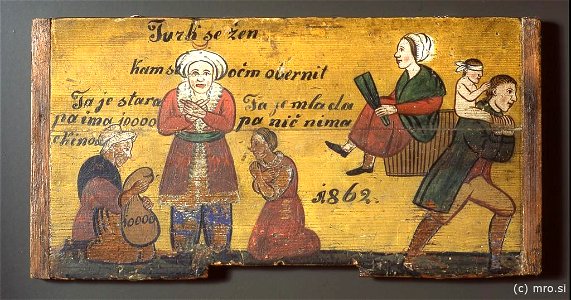 Turk se žen
kam se očm obernit
Ta je stara
pa ima 10000
Ta je mlada
pa nič nima
10000
1862.
(c) mro.si